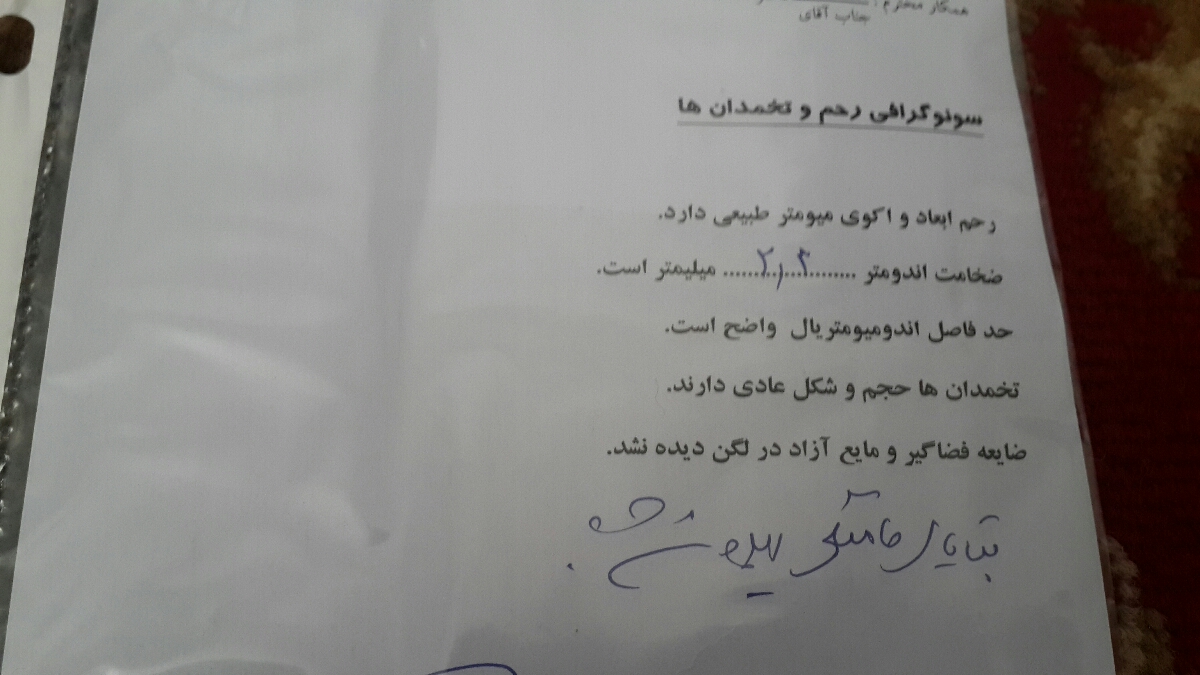 همکار محترم :
جناب آقای
سونوگرافی رحم و تخمدان ها
رحم ابعاد و اکوی میومتر طبیعی دارد.
ضخامت اندومتر ........۲٫۴........ میلیمتر است.
حد فاصل اندومیومتریال واضح است.
تخمدان ها حجم و شکل عادی دارند.
ضایعه فضاگیر و مایع آزاد در لگن دیده نشد.
بقایای حاملگی دیده نشد.